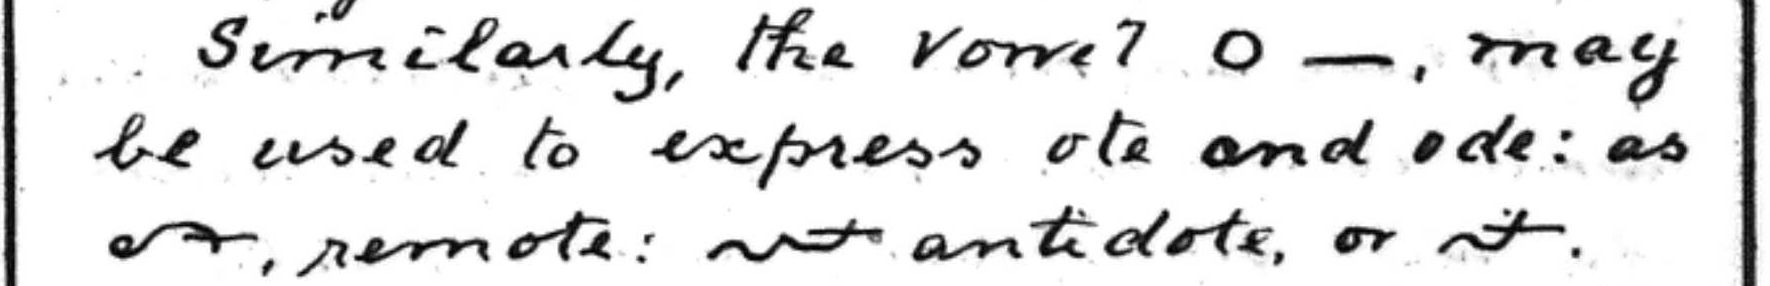 Similarly, the vowel O —, may
be used to express ote and ode: as
, remote: antidote, or .